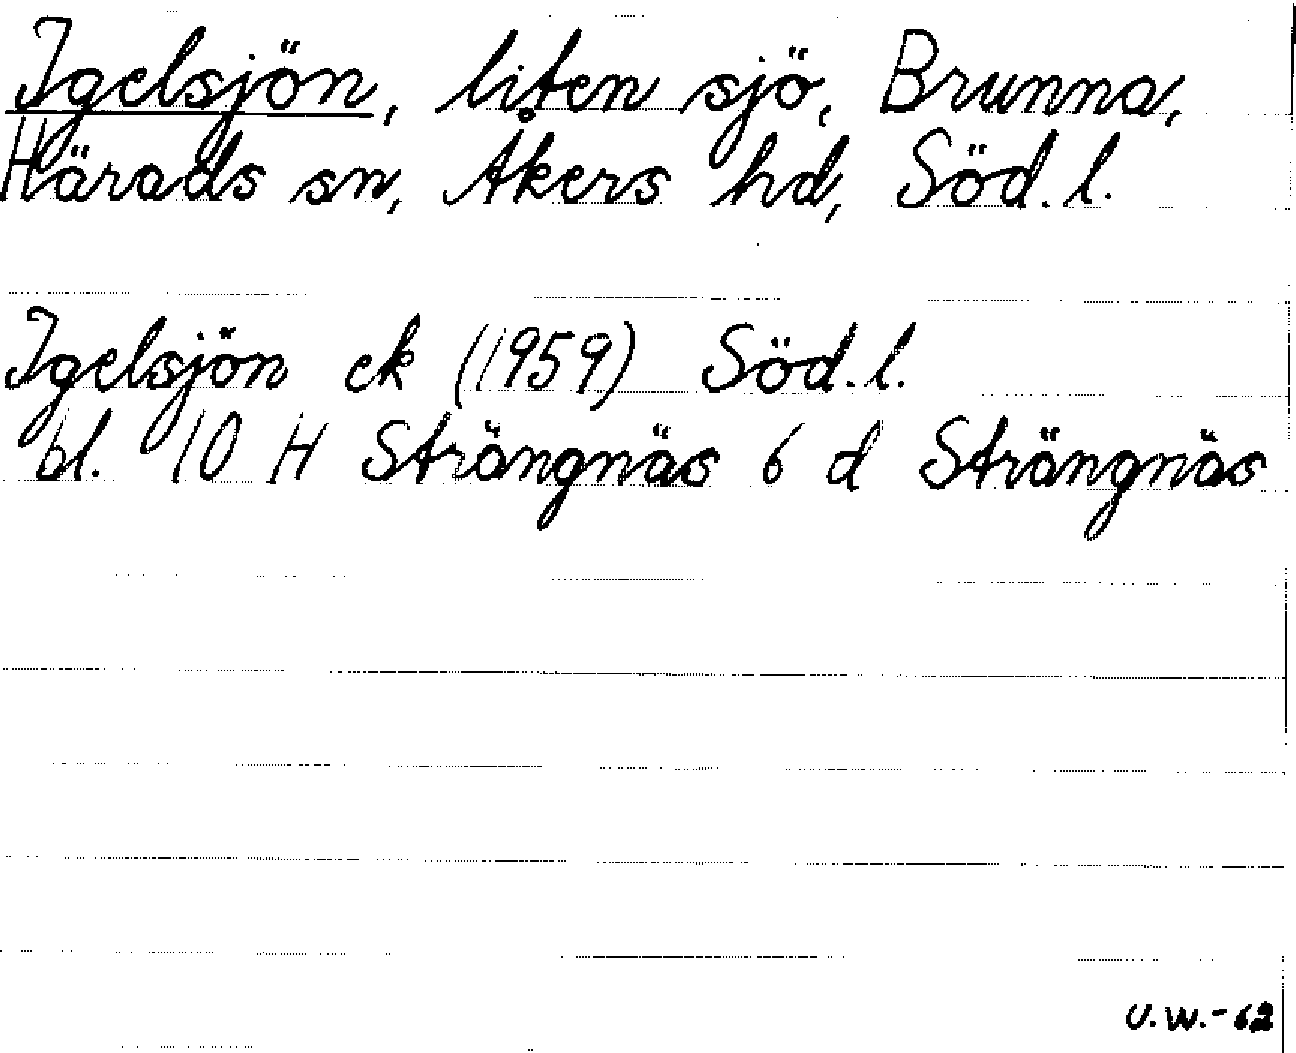 Igelsjön, liten sjö, Brunna,
Härads sn, Åkers hd, Söd. l.
Igelsjön ek (1959) Söd. l.
bl. 10 H Strängnäs 6 d Strängnäs
U.W.-62